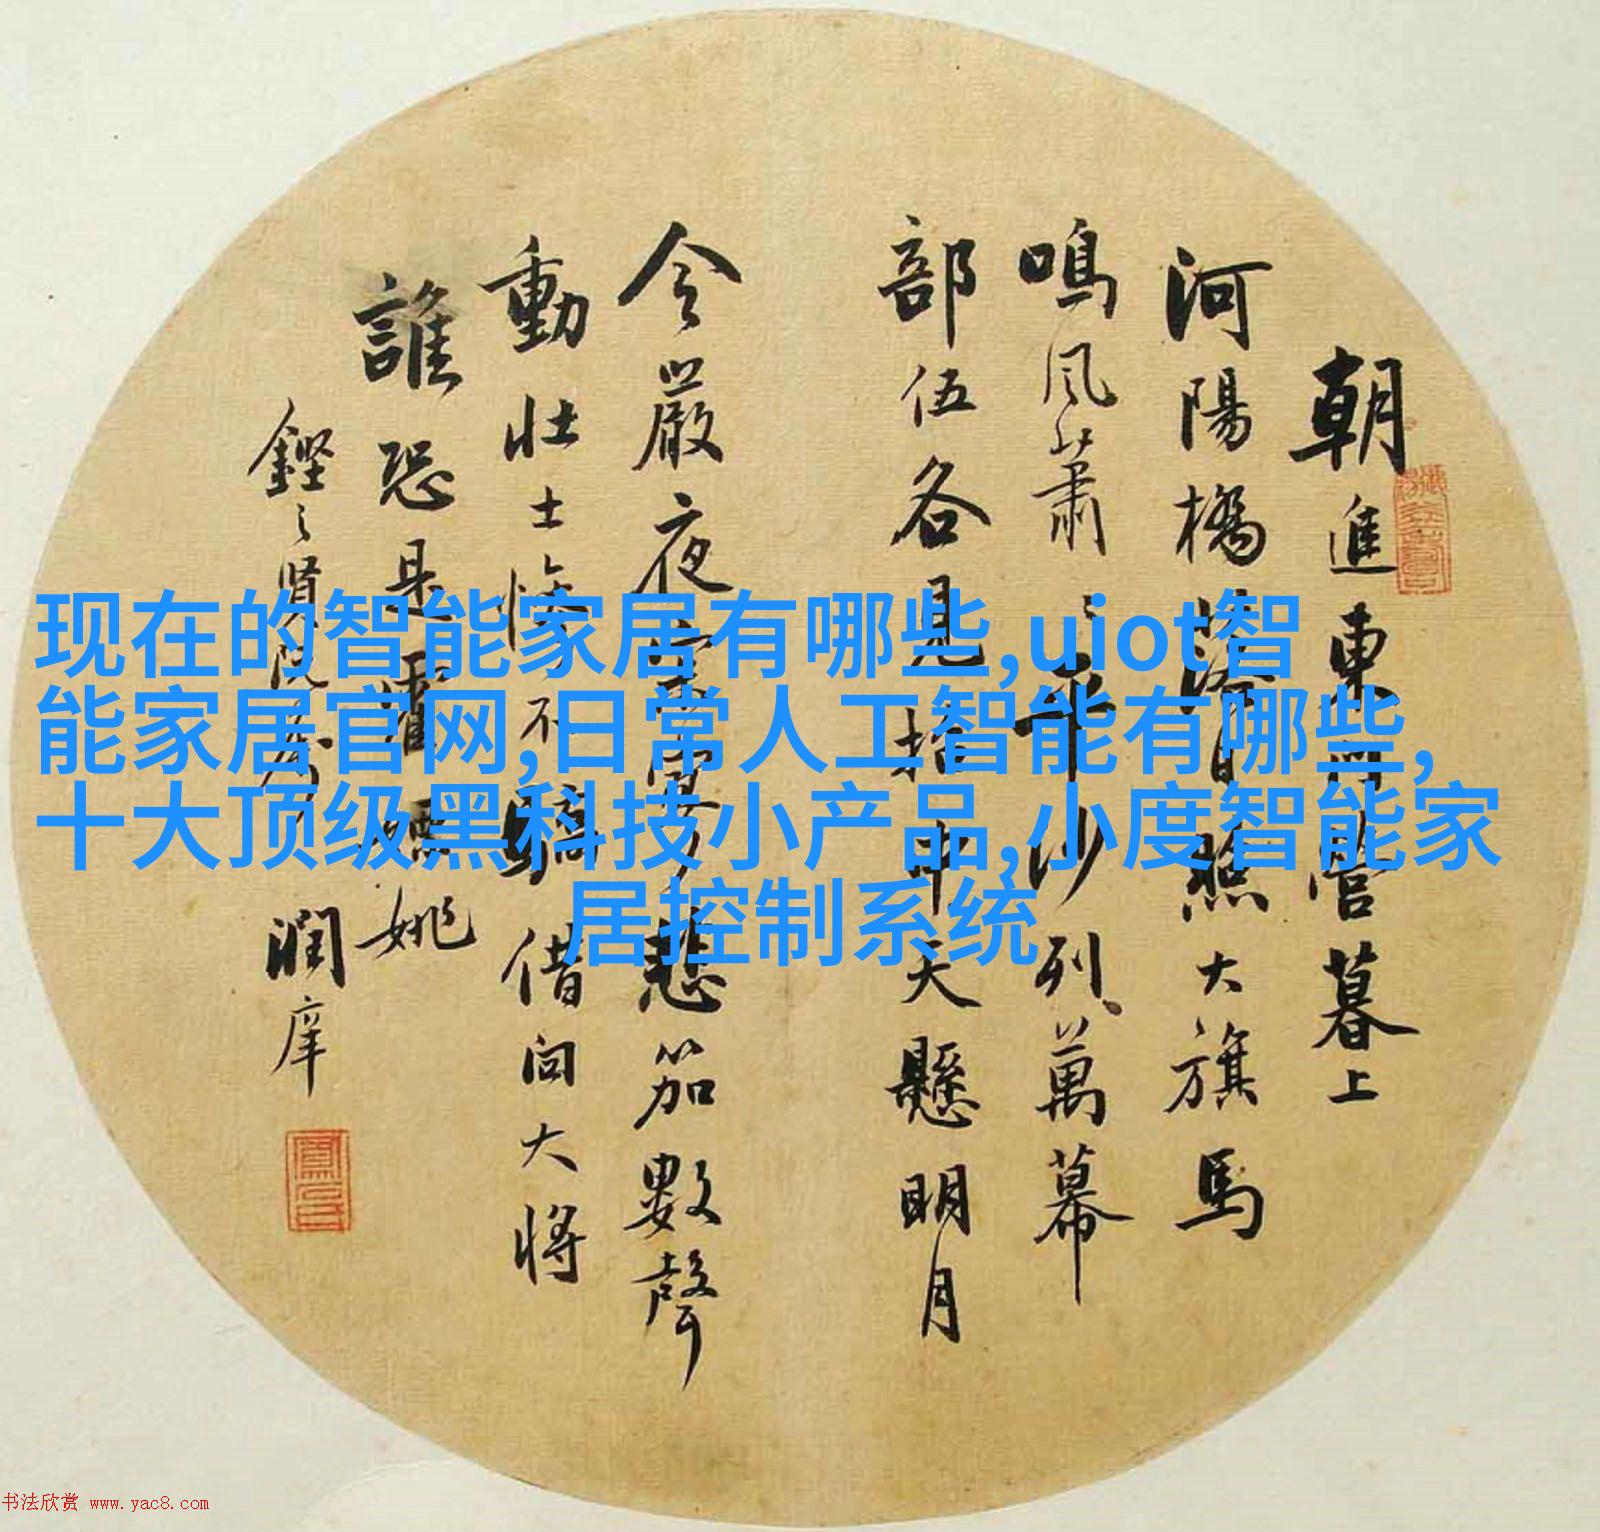 朝進東門營暮上
河陽橋落日照大旗馬
鳴風蕭〻平沙列萬幕
部伍各見招中天懸明月
令嚴夜寂寥悲笳數聲
動壯士慘不驕借問大將
誰恐是霍嫖姚
鏗之賢阮屬 潤庠
现在的智能家居有哪些,uiot智
能家居官网,日常人工智能有哪些,
十大顶级黑科技小产品,小度智能家
居控制系统
书法欣赏 www.yac8.com